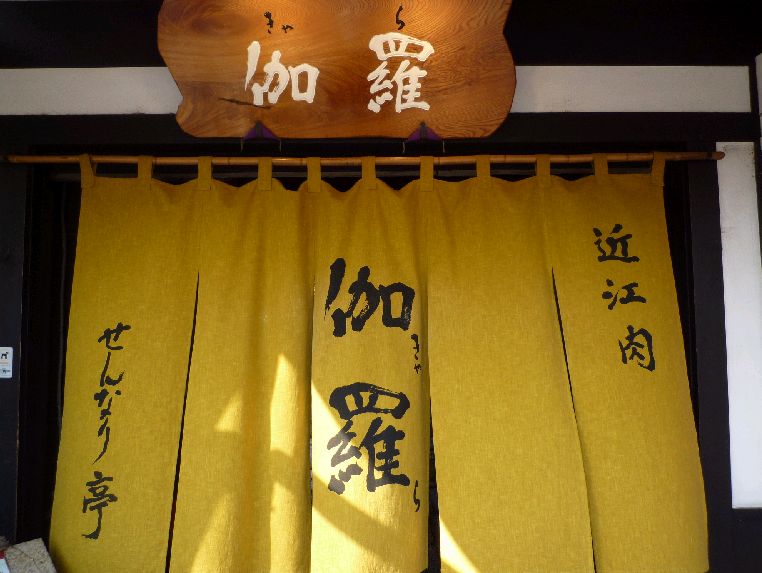 きゃら
伽羅
近江肉
伽羅
きゃら
せんなり亭